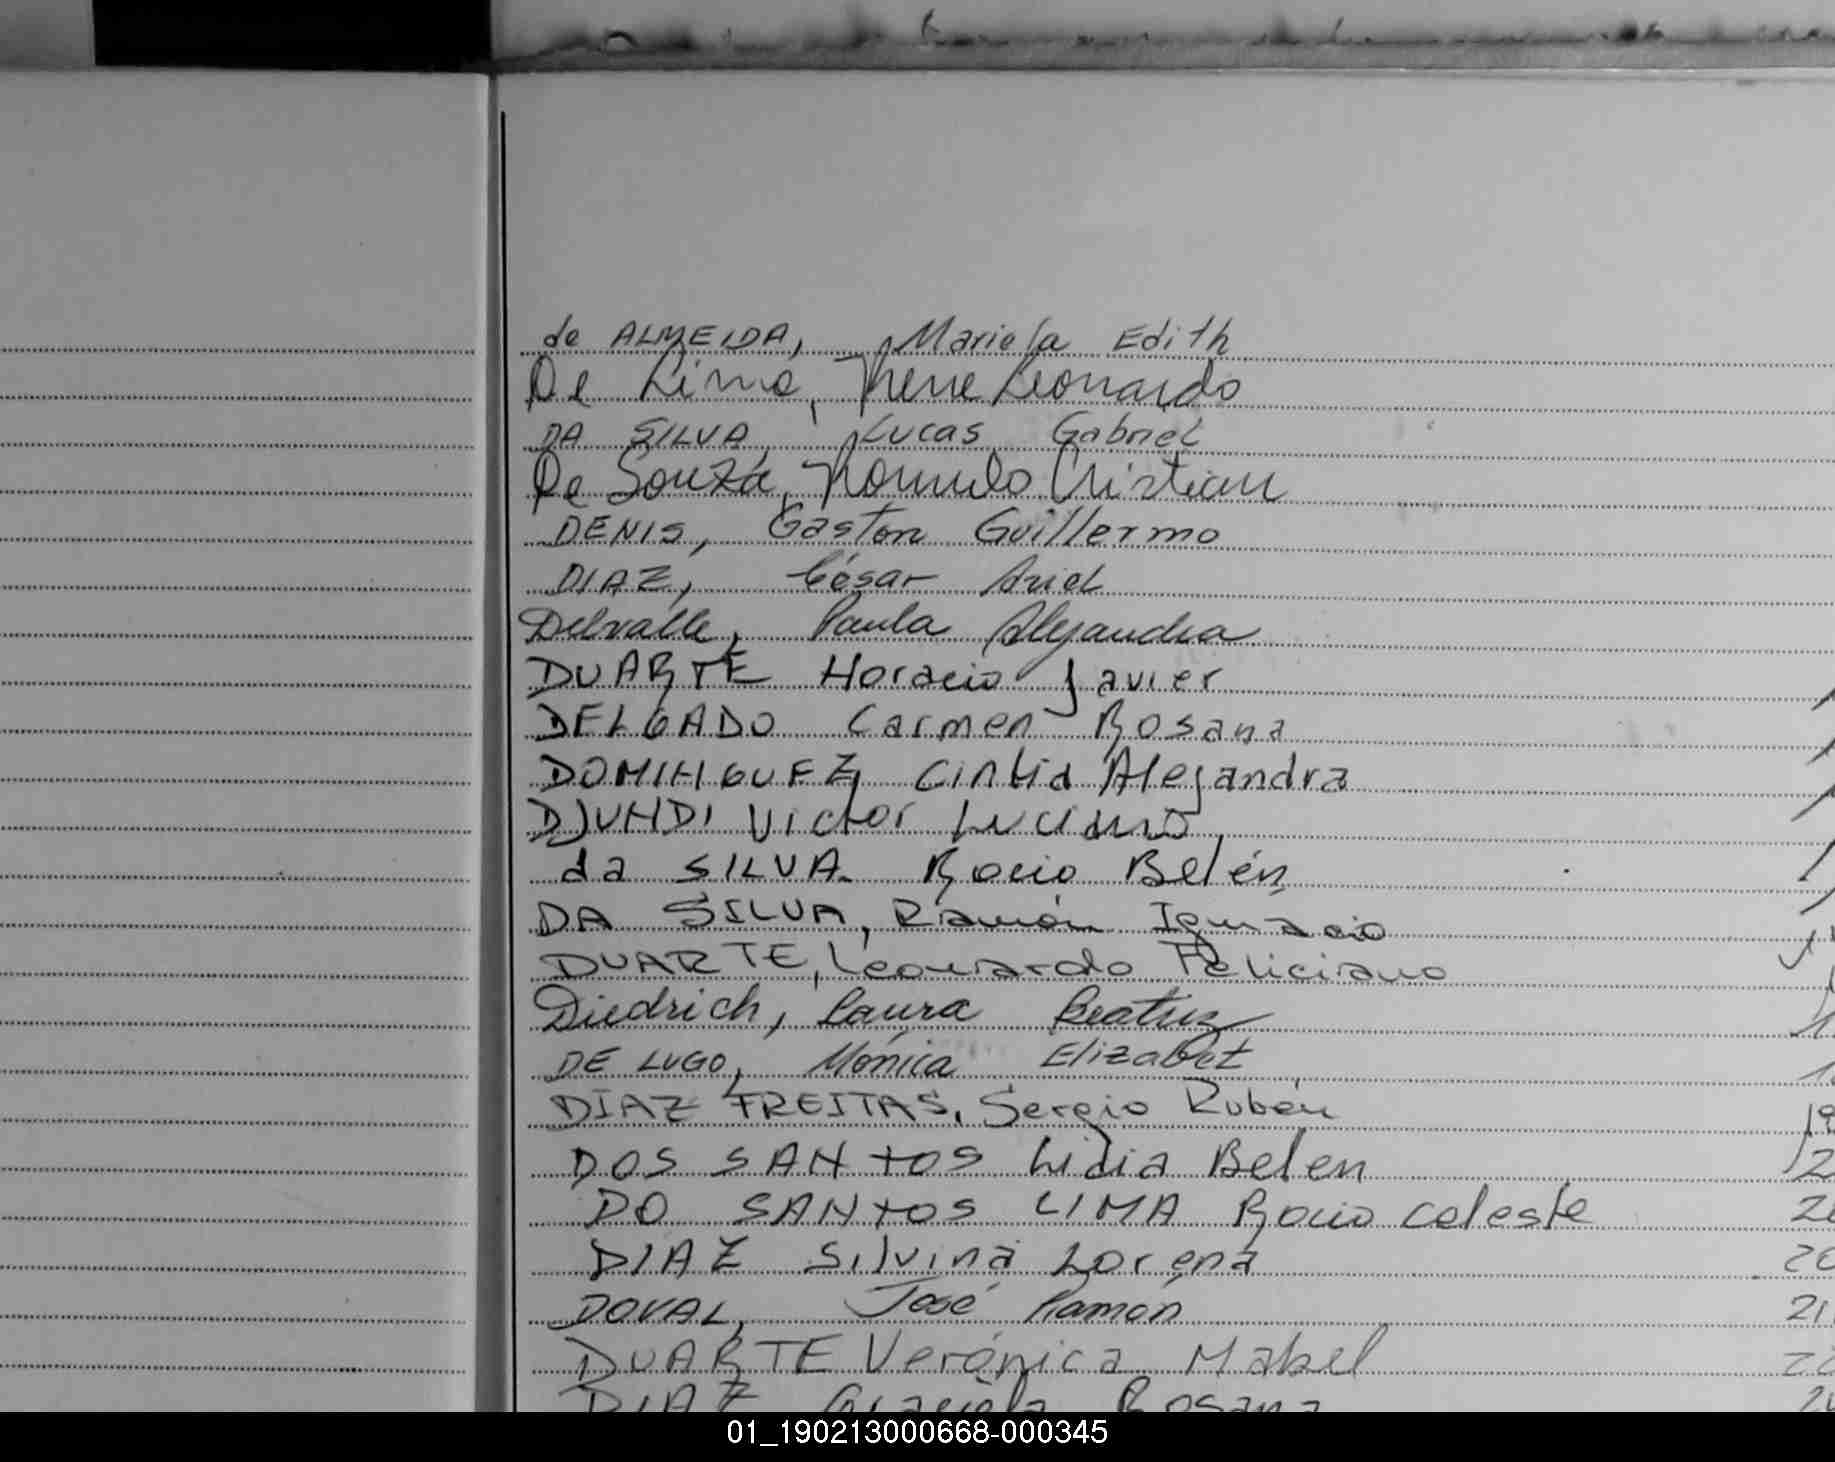 de ALMEIDA, Mariela Edith
De Lima, Rene Leonardo
DA SILVA, Lucas Gabriel
De Souza, Romulo Cristian
DENIS, Gaston Guillermo
DIAZ, César Ariel
Delvalle, Paula Alejandra
DUARTE Horacio Javier
DELGADO Carmen Rosana
DOMINGUEZ Cintia Alejandra
DJUNDI Victor Luciano
da SILVA Rocio Belén
DA SILVA, Ramón Ignacio
DUARTE, Leonardo Feliciano
Diedrich, Laura Beatriz
DE LUGO, Mónica Elizabet
DIAZ FREITAS, Sergio Rubén 19
DOS SANTOS Lidia Belen 2
DO SANTOS LIMA Rocio celeste
DIAZ Silvina Lorena 20
DOVAL, José Ramón 21
DUARTE Verónica Mabel 22
DIAZ Graciela Rosana
01_190213000668-000345